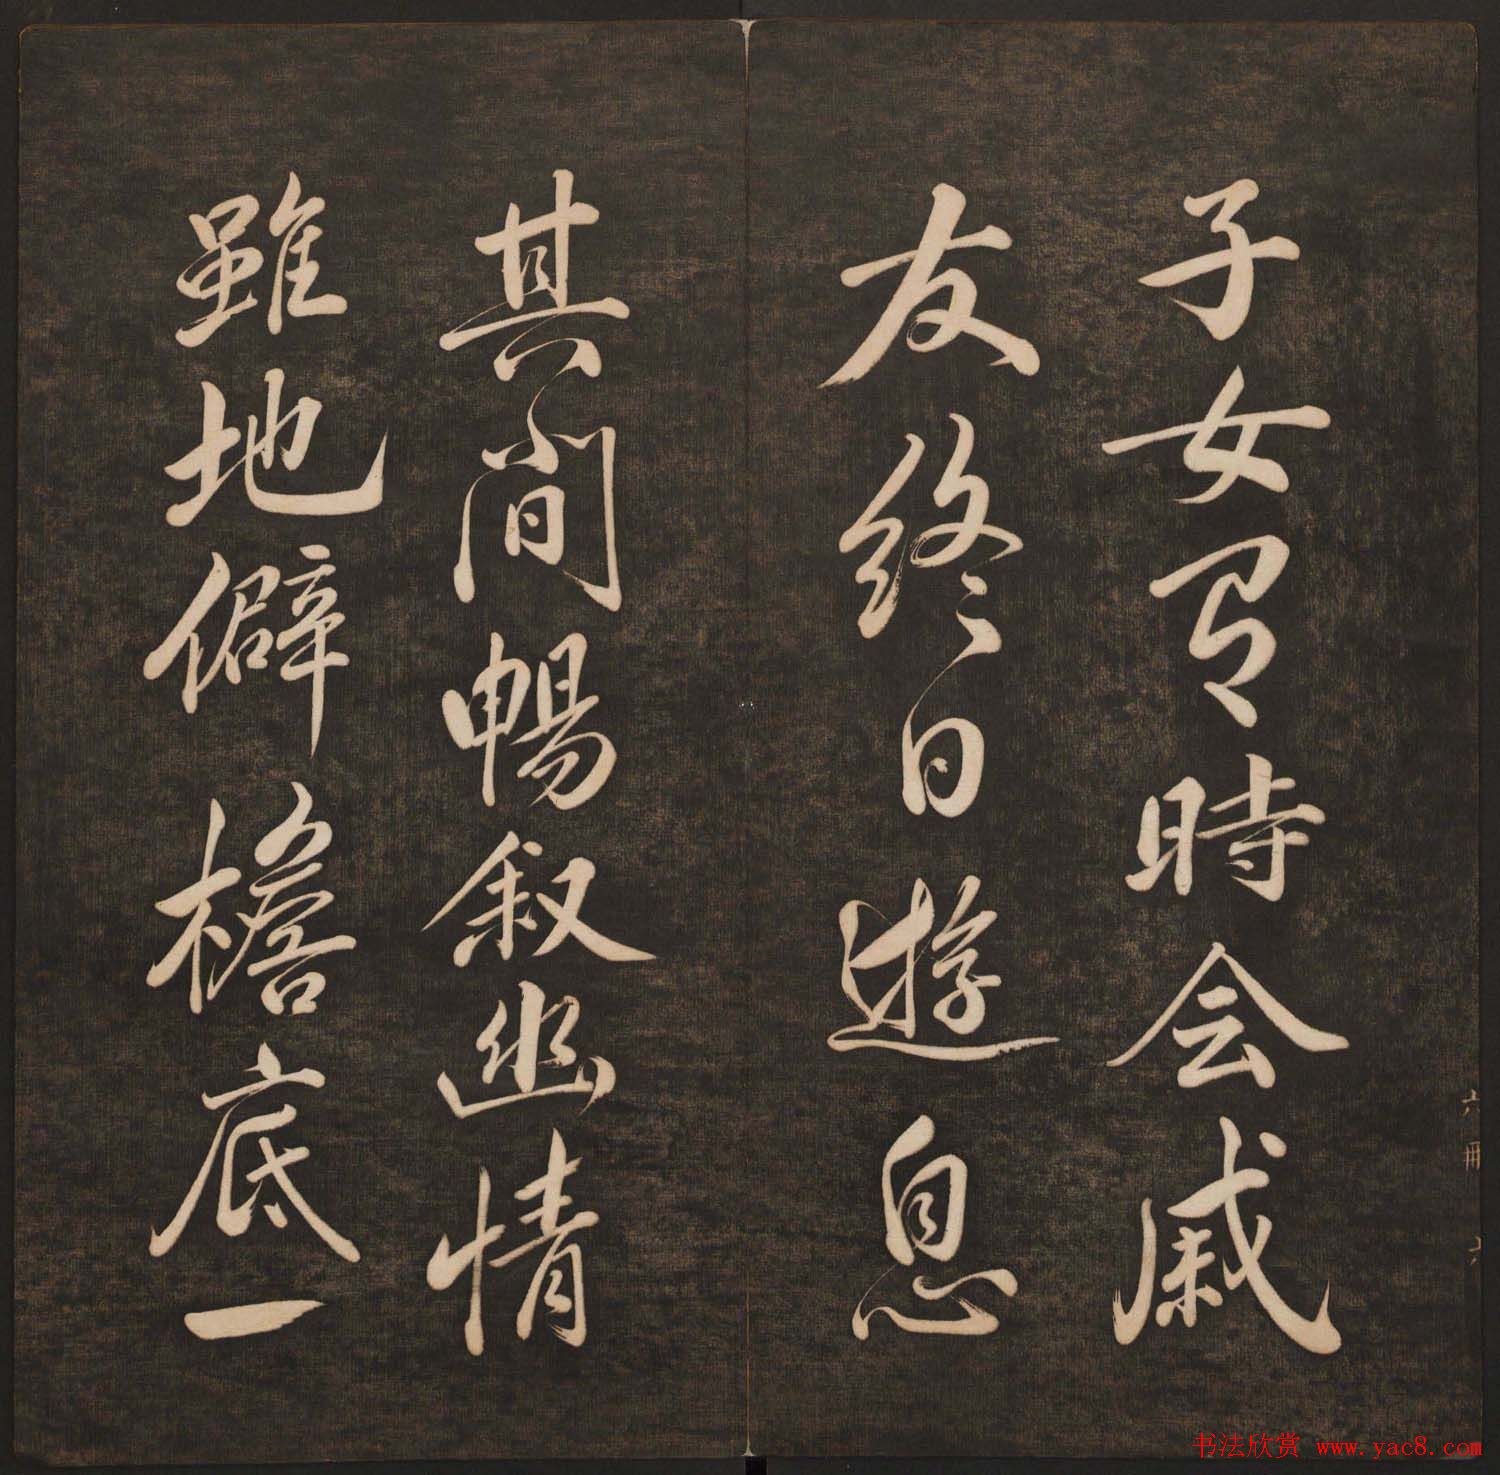 子女有時会戚
友終日遊息
其间暢叙幽情
雖地僻檐底一
六冊
六
书法欣赏 www.yac8.com